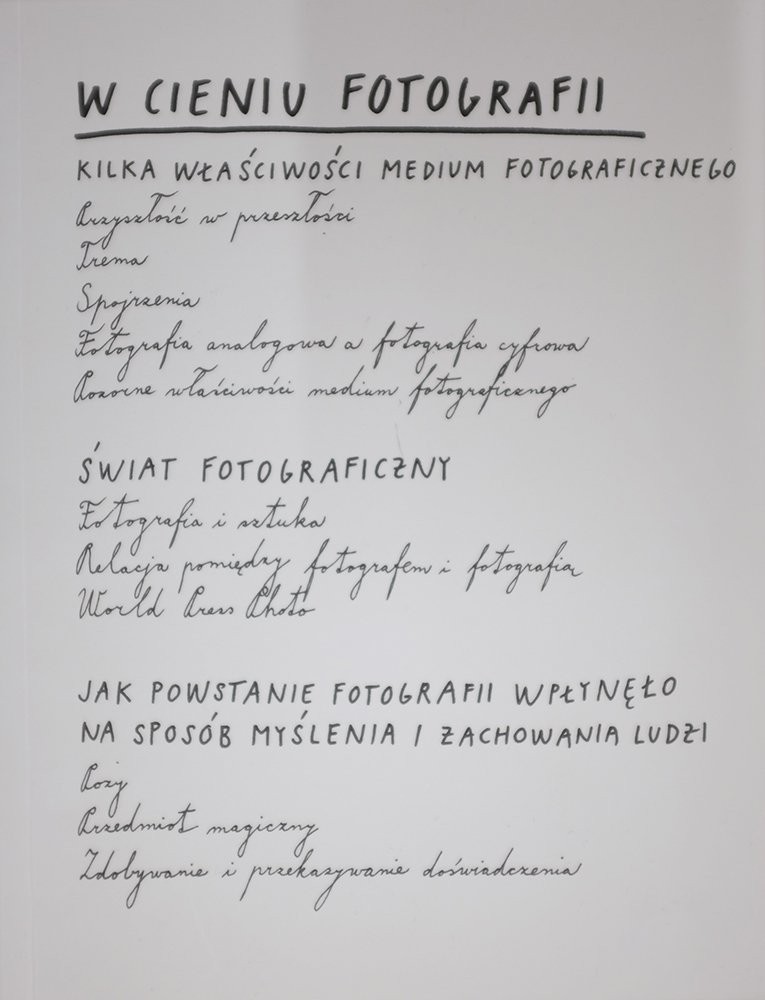 W CIENIU FOTOGRAFII
KILKA WŁAŚCIWOŚCI MEDIUM FOTOGRAFICZNEGO
Przyszłość w przeszłości
Trema
Spojrzenia
Fotografia analogowa a fotografia cyfrowa
Pozorne właściwości medium fotograficznego
ŚWIAT FOTOGRAFICZNY
Fotografia i sztuka
Relacja pomiędzy fotografem i fotografią
World Press Photo
JAK POWSTANIE FOTOGRAFII WPŁYNĘŁO
NA SPOSÓB MYŚLENIA I ZACHOWANIA LUDZI
Pozy
Przedmiot magiczny
Zdobywanie i przekazywanie doświadczenia